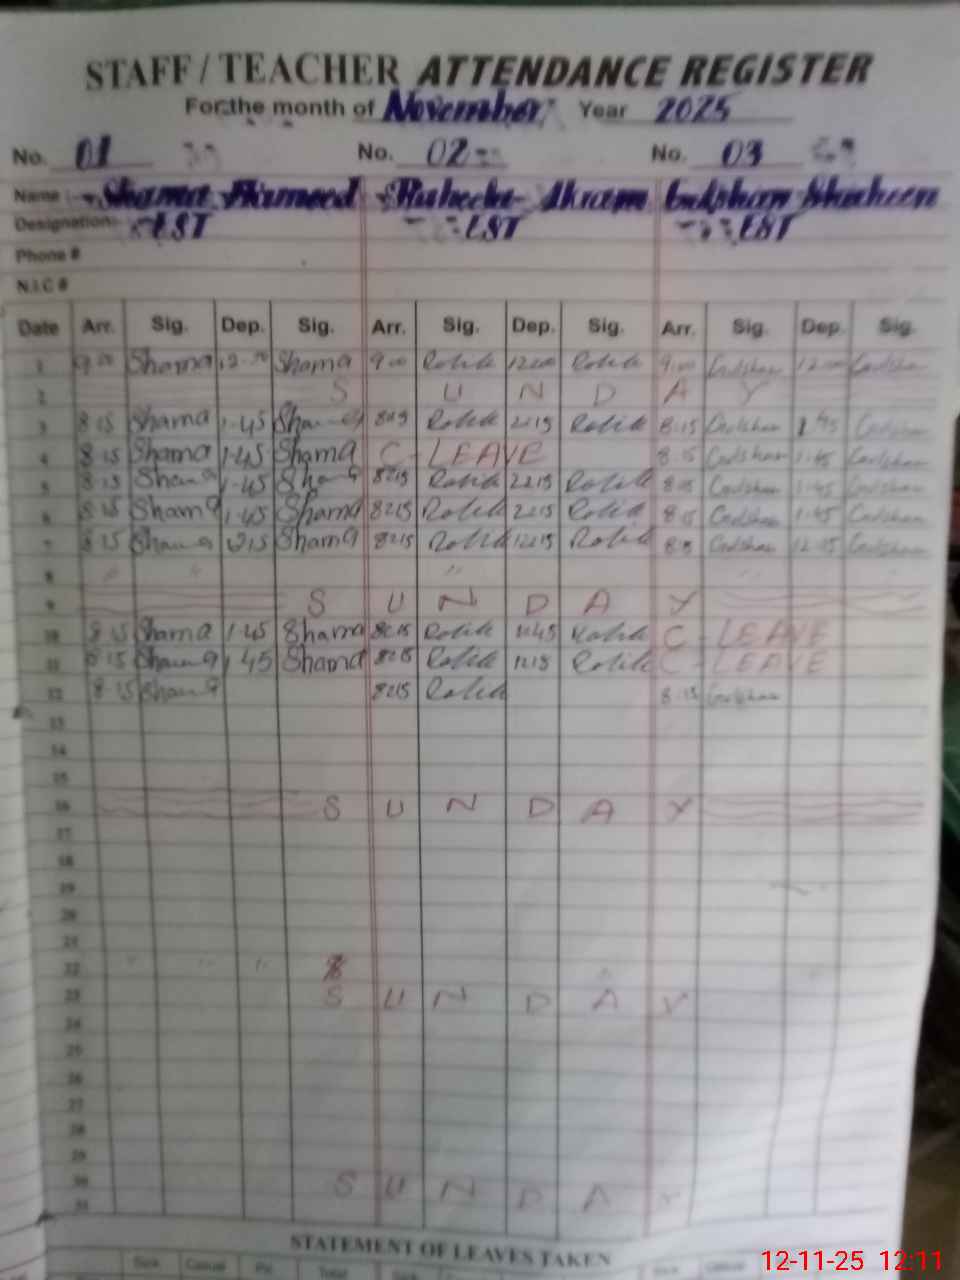 STAFF / TEACHER ATTENDANCE REGISTER
For the month of November Year 2025
No. 01 No. 02 No. 03
Name Shama Hameed Akram Gulshan Shaheen
Designation EST EST EST
Phone #
N.I.C #
Date Arr. Sig. Dep. Sig. Arr. Sig. Dep. Sig. Arr. Sig. Dep. Sig.
1 9.00 Shama 12.00 Shama 9.00 12.00 9.00 Gulshan 12.00 Gulshan
2 S U N D A Y
3 8.15 Shama 1.45 Shama 8.15 8.15 Gulshan 1.45 Gulshan
4 8.15 Shama 1.45 Shama C - LEAVE 8.15 Gulshan 1.45 Gulshan
5 8.15 Shama 1.45 Shama 8:15 8.15 Gulshan 1.45 Gulshan
6 8.15 Shama 1.45 Shama 8:15 8.15 Gulshan 1.45 Gulshan
7 8.15 Shama Shama 8:15 12:15 Gulshan 12.15 Gulshan
8
9 S U N D A Y
10 8.15 Shama 1.45 Shama 8:15 C - LEAVE
11 8.15 Shama 1.45 Shama 8:15 C - LEAVE
12 8.15 Shama 8:15 8.15 Gulshan
13
14
15
16 S U N D A Y
17
18
19
20
21
22
23 S U N D A Y
24
25
26
27
28
29
30 S U N D A Y
31
STATEMENT OF LEAVES TAKEN
Sick Casual Total Sick Casual
12-11-25 12:11